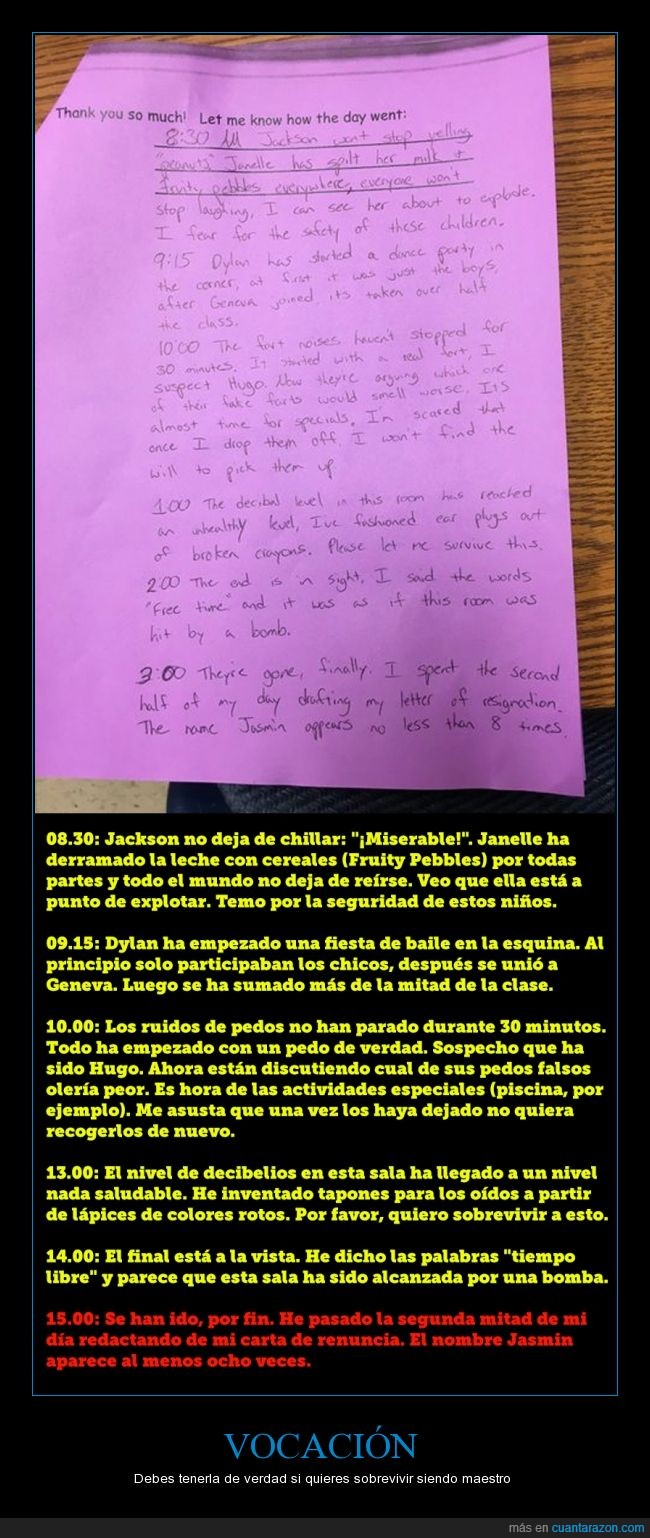 Thank you so much! Let me know how the day went:
8:30 Jackson wont stop yelling
"peanuts" Janelle has spilt her milk &
fruity pebbles everywhere, everyone won't
stop laughing, I can see her about to explode.
I fear for the safety of these children.
9:15 Dylan has started a dance party in
the corner, at first it was just the boys,
after Geneva joined its taken over half
the class.
10:00 The fart noises haven't stopped for
30 minutes. It started with a real fart, I
suspect Hugo. Now theyre arguing which one
of their fake farts would smell worse. Its
almost time for specials. I'm scared that
once I drop them off, I won't find the
will to pick them up
1:00 The decibal level in this room has reached
an unhealthy level, Ive fashioned ear plugs out
of broken crayons. Please let me survive this.
2:00 The end is in sight, I said the words
"Free time" and it was as if this room was
hit by a bomb.
3:00 They're gone, finally. I spent the second
half of my day drafting my letter of resignation.
The name Jasmin appears no less than 8 times.
08.30: Jackson no deja de chillar: "¡Miserable!". Janelle ha
derramado la leche con cereales (Fruity Pebbles) por todas
partes y todo el mundo no deja de reírse. Veo que ella está a
punto de explotar. Temo por la seguridad de estos niños.
09.15: Dylan ha empezado una fiesta de baile en la esquina. Al
principio solo participaban los chicos, después se unió a
Geneva. Luego se ha sumado más de la mitad de la clase.
10.00: Los ruidos de pedos no han parado durante 30 minutos.
Todo ha empezado con un pedo de verdad. Sospecho que ha
sido Hugo. Ahora están discutiendo cual de sus pedos falsos
olería peor. Es hora de las actividades especiales (piscina, por
ejemplo). Me asusta que una vez los haya dejado no quiera
recogerlos de nuevo.
13.00: El nivel de decibelios en esta sala ha llegado a un nivel
nada saludable. He inventado tapones para los oídos a partir
de lápices de colores rotos. Por favor, quiero sobrevivir a esto.
14.00: El final está a la vista. He dicho las palabras "tiempo
libre" y parece que esta sala ha sido alcanzada por una bomba.
15.00: Se han ido, por fin. He pasado la segunda mitad de mi
día redactando de mi carta de renuncia. El nombre Jasmin
aparece al menos ocho veces.
VOCACIÓN
Debes tenerla de verdad si quieres sobrevivir siendo maestro
más en cuantarazon.com